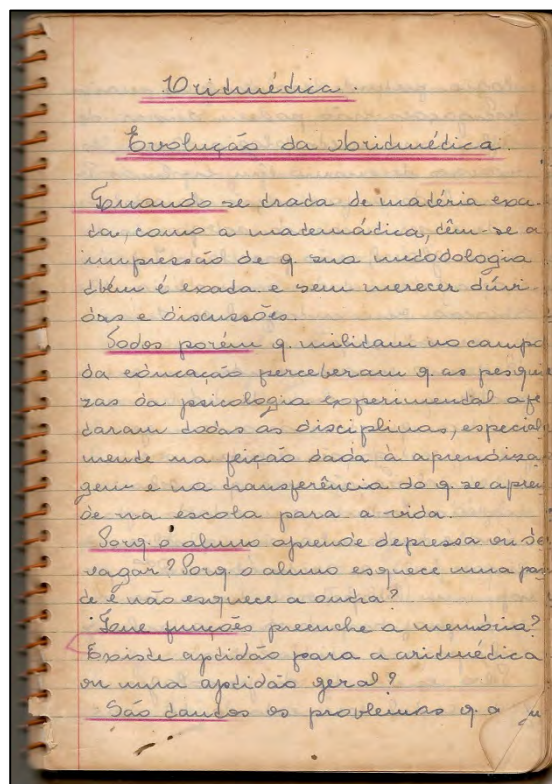 Aritmética.
Evolução da Aritmética.
Quando se trata de matéria exa-
ta, como a matemática, têm-se a
impressão de q sua metodologia
tbém é exata e sem merecer dúvi-
das e discussões.
Todos porém q. militam no campo
da educação perceberam q as pesqui
zas da psicologia experimental afe
taram todas as disciplinas, especial
mente na feição dada à aprendiza
gem e na transferência do q. se apren
de na escola para a vida.
Porq. o aluno aprende depressa ou de
vagar? Porq. o aluno esquece uma par
te e não esquece a outra?
Que funções preenche a memória?
Existe aptidão para a aritmética
ou uma aptidão geral?
São tantos os problemas q a